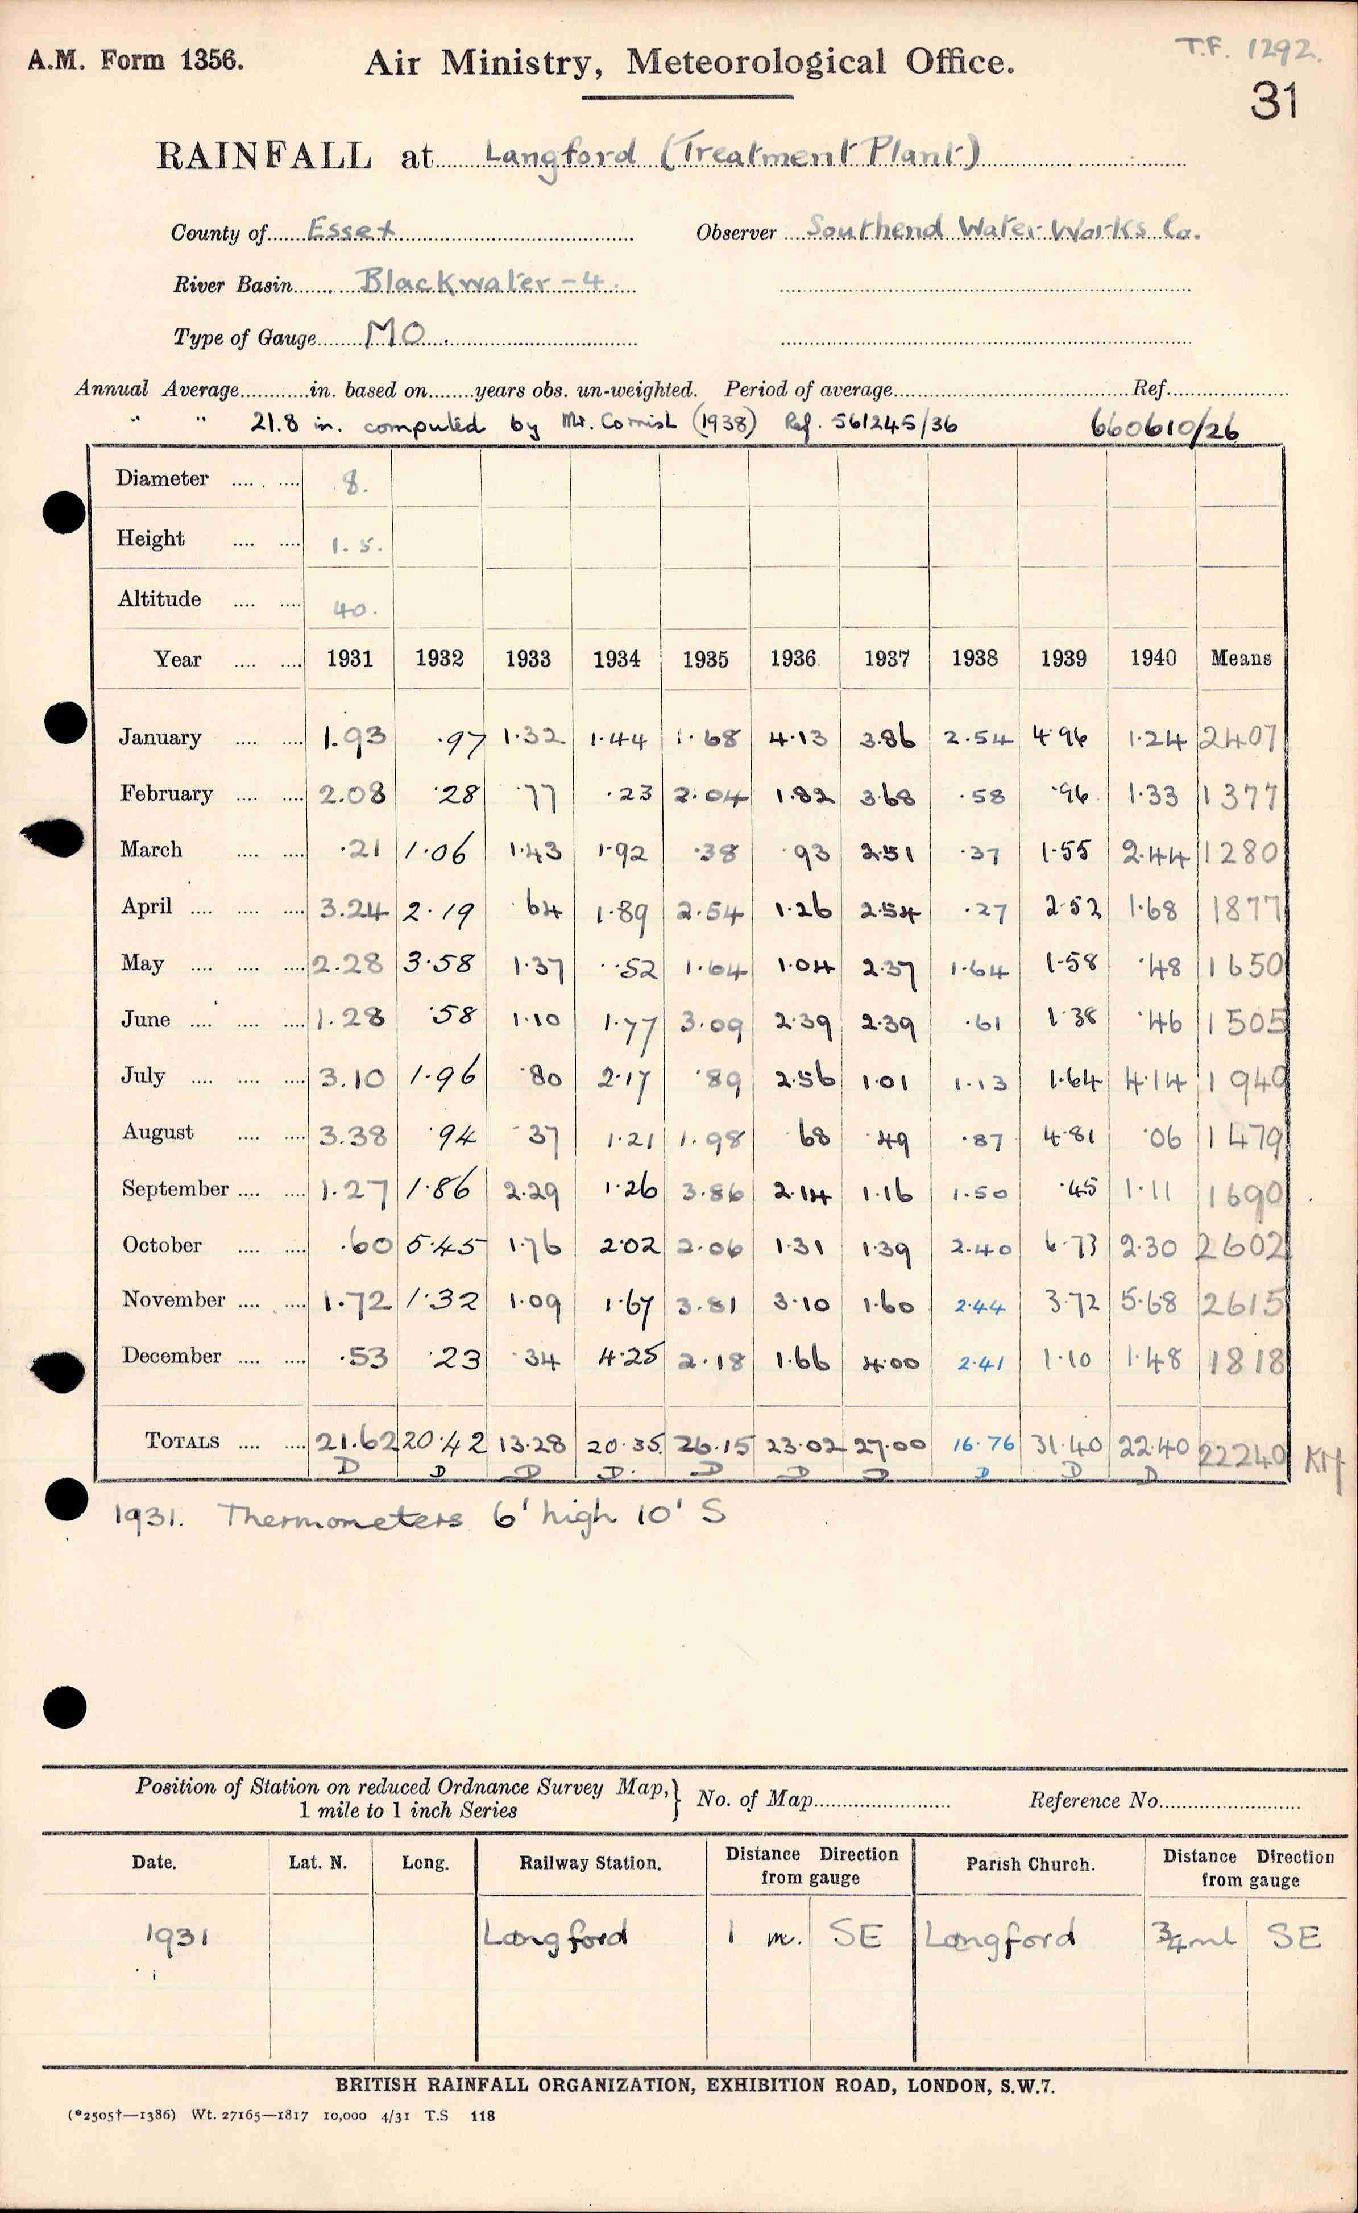 A.M. Form 1356. Air Ministry, Meteorological Office. T.F. 1292.
31
RAINFALL at Langford (Treatment Plant)
County of Essex Observer Southend Water Works Co.
River Basin Blackwater - 4.
Type of Gauge MO.
Annual Average in. based on years obs. un-weighted. Period of average Ref.
" " 21.8 in. computed by Mr. Cornish (1938) Ref. 561245/36 660610/26
Diameter 8.
Height 1.5.
Altitude 40.
Year 1931 1932 1933 1934 1935 1936 1937 1938 1939 1940 Means
January 1.93 .97 1.32 1.44 1.68 4.13 3.86 2.54 4.96 1.24 2407
February 2.08 .28 .77 .23 2.04 1.82 3.68 .58 .96 1.33 1377
March .21 1.06 1.43 1.92 .38 .93 2.51 .37 1.55 2.44 1280
April 3.24 2.19 .64 1.89 2.54 1.26 2.54 .27 2.52 1.68 1877
May 2.28 3.58 1.37 .52 1.64 1.04 2.37 1.64 1.58 .48 1650
June 1.28 .58 1.10 1.77 3.09 2.39 2.39 .61 1.38 .46 1505
July 3.10 1.96 .80 2.17 .89 2.56 1.01 1.13 1.64 4.14 1940
August 3.38 .94 .37 1.21 1.98 .68 .49 .87 4.81 .06 1479
September 1.27 1.86 2.29 1.26 3.86 2.14 1.16 1.50 .45 1.11 1690
October .60 5.45 1.76 2.02 2.06 1.31 1.39 2.40 6.73 2.30 2602
November 1.72 1.32 1.09 1.67 3.81 3.10 1.60 2.44 3.72 5.68 2615
December .53 .23 .34 4.25 2.18 1.66 4.00 2.41 1.10 1.48 1818
TOTALS 21.62 20.42 13.28 20.35 26.15 23.02 27.00 16.76 31.40 22.40 22240
D D D D. D D D D D D
1931. Thermometers 6' high 10' S
Position of Station on reduced Ordnance Survey Map, } No. of Map Reference No.
1 mile to 1 inch Series
Date. Lat. N. Long. Railway Station. Distance Direction from gauge Parish Church. Distance Direction from gauge
1931 Langford 1 m. SE Langford 3/4 ml SE
BRITISH RAINFALL ORGANIZATION, EXHIBITION ROAD, LONDON, S.W.7.
(*2505†—1386) Wt. 27165—1817 10,000 4/31 T.S 118